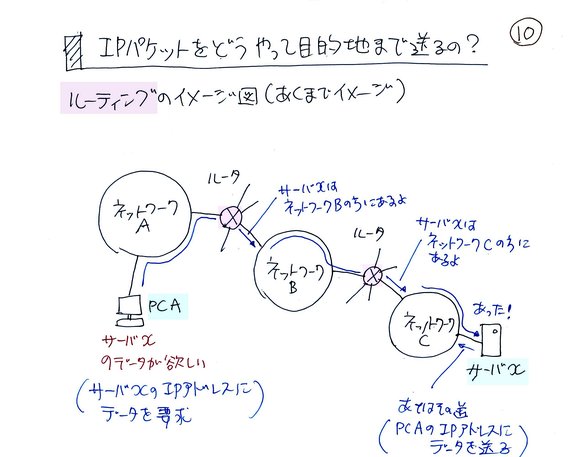 IPパケットをどうやって目的地まで送るの?
10
ルーティングのイメージ図(あくまでイメージ)
ルータ
サーバxは
ネットワークBのうちにあるよ
ネットワーク
A
ルータ
サーバxは
ネットワークCのうちに
あるよ
ネットワーク
B
PCA
あった!
ネットワーク
C
サーバx
のデータが欲しい
サーバx
(サーバxのIPアドレスに
データを要求)
あてはその逆
(PCAのIPアドレスに
データを送る)